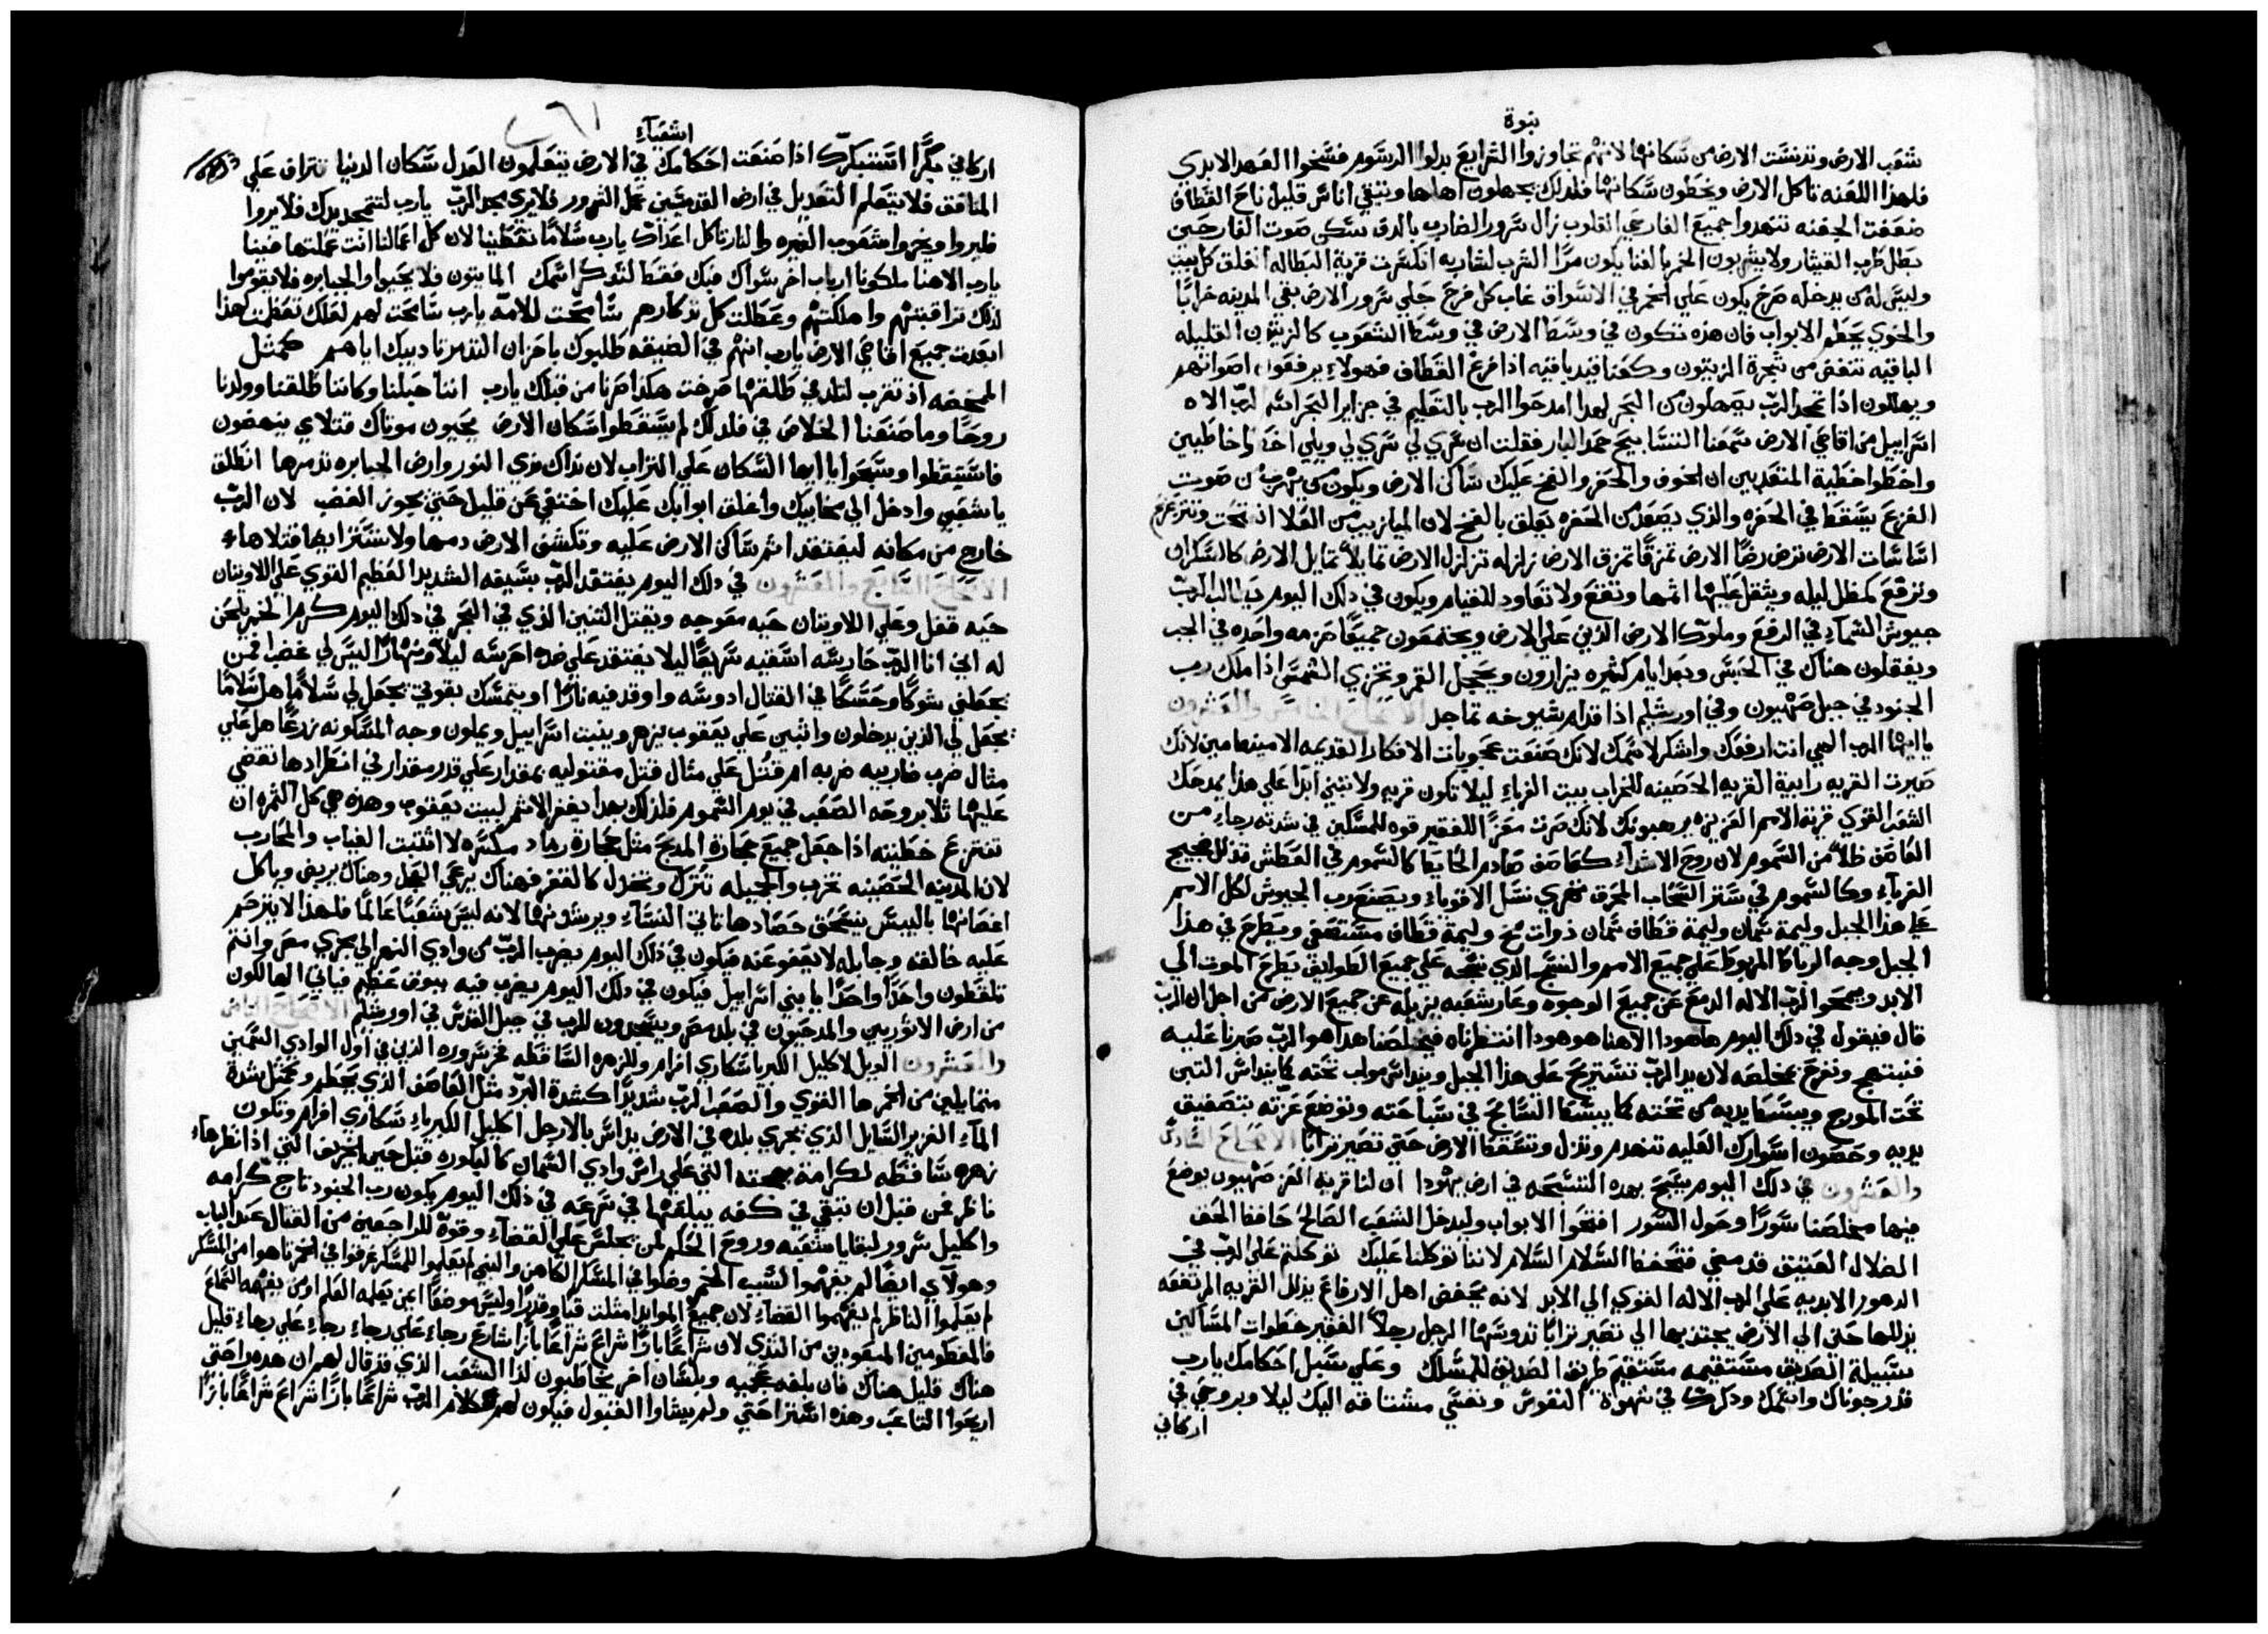 نبوة
شعب الارض وتدنست الارض من سكانها لانهم تجاوزوا الشرايع بدلوا الرسوم فسخوا العهد الابدي
فلهذا اللعنه تاكل الارض ويخطون سكانها فلذلك يجهلون اهلها وتبقي اناس قليل ناح القطاف
ضعفت الجفنه تنهدوا جميع الفارحي القلوب زال سرور الضارب بالدف سكن صوت الفارحين
بطل طرب القيثار ولا يشربون الخمر بالغنا يكون مرا الشرب لشاربه انكسرت قرية البطاله انغلق كل بيت
وليس له من يدخله صرخ يكون علي الخمر في الاسواق غاب كل فرح جلي سرور الارض بقي المدينه خرابا
والخوي يحطم الابواب فان هذه تكون في وسط الارض في وسط الشعوب كالزيتون القليله
الباقيه تنتفض من شجرة الزيتون وكعناقيد باقيه اذا فرغ القطاف فهولاء يرفعون اصواتهم
ويهللون اذا تمجد الرب يصهلون من البحر لهذا امدحوا الرب بالتعليم في جزاير البحر اسم الرب الاه
اسراييل من اقاصي الارض سمعنا التسابيح حمد البار فقلت ان سري لي سري لي ويلي اخطا خاطيين
واخطوا خطية المتعديين ان الخوف والحفره والفخ عليك ساكن الارض ويكون من يهرب من صوت
الفزع يسقط في الحفره والذي يصعد من الحفره يعلق بالفخ لان الميازيب من العلا انفتحت وتتزعزع
اساسات الارض ترض رضا الارض تمزقا تمزق الارض زلزله تزلزل الارض تمايلا تمايل الارض كالسكران
وترفع كمظل ليله ويثقل عليها اثمها وتقع ولا تعاود للقيام ويكون في ذلك اليوم يطالب الرب
جيوش السماء في الرفع وملوك الارض الذين علي الارض ويجتمعون جميعا حزمه واحده في الجب
ويغلقون هناك في الحبس وبعد ايام كثيره يزارون ويخجل القمر وتخزي الشمس اذا ملك رب
الجنود في جبل صهيون وفي اورشليم اذا قدام شيوخه تماجد الاصحاح الخامس والعشرون
يا ايها الرب الهي انت ارفعك واشكر لاسمك لانك صنعت عجوبات الافكار القديمه الامينه امين لانك
صيرت القريه رابية القريه الحصينه للخراب بيت الغرباء ليلا تكون قريه ولا تبني ابدا علي هذا يمدحك
الشعب القوي قرية الامم العزيزه يرهبونك لانك صرت معزا للفقير قوه للمسكين في شدته رجاء من
العاصف ظلا من السموم لان روح الاشداء كعاصف صادم الحايط كالسموم في العطش تذلل ضجيج
الغرباء وكالسموم في ستر السحاب المحرق تضري نسل الاقوياء ويصنع رب الجيوش لكل الامم
علي هذا الجبل وليمة سمان وليمة قطاف سمان ذوات مخ وليمة قطاف مستصفي ويطرح في هذا
الجبل وجه الرباط المربوط علي جميع الامم والنسج الذي نسجه علي جميع الطوايف يطرح الموت الي
الابد ويمحوا الرب الاله الدمع عن جميع الوجوه وعار شعبه يزيله عن جميع الارض من اجل ان الرب
قال فيقول في ذلك اليوم ها هوذا الاهنا هو هوذا انتظرناه فيخلصنا هذا هو الرب صبرنا عليه
فنبتهج ونفرح بخلصه لان يد الرب تستريح علي هذا الجبل ويداس مواب تحته كما يداس التبن
تحت المورج ويبسط يديه من تحته كما يبسط السابح في سباحته وتوضع عزته بتصفيق
يديه وحصون اسوارك العليه تنهدم وتذل وتسقط الارض حتي تصير ترابا الاصحاح السادس
والعشرون في ذلك اليوم يسبح بهذه التسبحه في ارض يهودا ان لنا قرية العز صهيون يوضع
فيها مخلصنا سورا وحول السور افتحوا الابواب وليدخل الشعب الصالح حافظ الحق
الضلال العتيق قد مضي فتحفظ السلام السلام لاننا توكلنا عليك توكلتم علي الرب في
الدهور الابديه علي الرب الاله القوي الي الابد لانه يخفض اهل الارتفاع يذلل القريه المرتفعه
يذللها حتي الي الارض يجتذبها الي تصير ترابا تدوسها الرجل رجلا الفقير خطوات المساكين
سبيلة الصديق مستقيمه مستقيم طريق الصديق للمسلك وعلي سبيل احكامك يا رب
قد رجوناك واسمك وذكرك في شهوة النفوس ونفسي مشتاقه اليك ليلا وبروحي في
اركاني
اشعياء
اركاني مبكرا استبكرك اذا صنعت احكامك في الارض يتعلمون العدل سكان الدنيا نتراف علي
المنافق فلا يتعلم التعديل في ارض القديسين عمل الشرور فلا يري مجد الرب يا رب لتتمجد يدك فلا يروا
فليروا ويخزوا شعوب الغيره والنار تاكل اعداك يا رب سلاما تعطينا لان كل اعمالنا انت عملتها فينا
يا رب الاهنا ملكونا ارباب اخر سواك فبك فقط لنذكر اسمك المايتون فلا يحيوا والجبابره فلا يقوموا
لذلك تراقبتهم واهلكتهم وعطلت كل تذكارهم سامحت للامه يا رب سامحت لهم لعلك تعظمت هكذا
ابعدت جميع اقاصي الارض يا رب انهم في الضيقه طلبوك باحزان التذمر تاديبك اياهم كمثل
الممخضه اذ تقرب لتلد في طلقها صرخت هكذا صرنا من قبلك يا رب اننا حبلنا وكاننا طلقنا وولدنا
روحا وما صنعنا الخلاص في فلذلك لم يسقطوا سكان الارض يحيون موتاك قتلاي ينهضون
فاستيقظوا وسبحوا يا ايها السكان علي التراب لان نداك ندي النور وارض الجبابره تدمرها انطلق
يا شعبي وادخل الي مخابيك واغلق ابوابك عليك اختفي عن قليل حتي يجوز الغضب لان الرب
خارج من مكانه ليفتقد اثم ساكن الارض عليه وتكشف الارض دمها ولا تستر ايضا قتلاها
الاصحاح السابع والعشرون في ذلك اليوم يفتقد الرب بسيفه الشديد العظيم القوي علي اللاويتان
حيه قفل وعلي اللاويتان حيه معوجه ويقتل التنين الذي في البحر في ذلك اليوم كرم الخمر يلحن
له اخر انا الرب حارسه اسقيه سريعا ليلا يفتقد عليه احرسه ليلا ونهارا ليس لي غضب فمن
يجعلني شوكا وحسكا في القتال ادوسه واوقد فيه نارا او يتمسك بقوتي يجعل لي سلاما هل سلاما
يجعل لي الذين يدخلون واثبين علي يعقوب يزهر وينبت اسراييل ويملون وجه المسكونه زرعا هل علي
مثال ضرب ضاربيه ضربه ام قتل علي مثال قتل مقتوليه بمقدار علي قدر مقدار في انطرادها تقضي
عليها ثلا بروحه الصعب في يوم السموم فلذلك بهذا يغفر الاثم لبيت يعقوب وهذه هي كل الثمره ان
تنتزع خطيته اذا جعل جميع حجارة المذبح مثل حجارة رماد مكسره لا انتبت الغياب والمحارب
لان المدينه الحصينه تخرب والجميله تترك وتخذل كالقفر فهناك يرعي العجل وهناك يربض وياكل
اغصانها باليبس ينسحق حصادها تاتي النساء ويرشدنها لانه ليس شعبا عالما فلهذا لا يترحم
عليه خالقه وجابله لا يعفو عنه فيكون في ذلك اليوم يضرب الرب من وادي النهر الي مجري مصر وانتم
تلقطون واحدا واحدا يا بني اسراييل فيكون في ذلك اليوم يضرب فيه ببوق عظيم فياتي الهالكون
من ارض الاثوريين والمدحيون في بلد مصر ويسجدون للرب في جبل القدس في اورشليم الاصحاح الثامن
والعشرون الويل لاكليل الكبريا سكاري افرام وللزهره الساقطه فخر سروره الذين في اول الوادي السمين
متمايلين من الخمر ها القوي والصعب الرب شديدا كشدة البرد مثل العاصف الذي يحطم وكمثل شدة
الماء الغزير السايل الذي يجري بلده في الارض يداس بالارجل اكليل الكبرياء سكاري افرام وتكون
زهره ساقطه لكرامة بهجته التي علي راس وادي السمان كالباكوره قبل حين الخريف التي اذا نظرها
ناظر فمن قبل ان تبقي في كفه يبلعها في سرعه في ذلك اليوم يكون رب الجنود تاج كرامه
واكليل سرور لبقايا شعبه وروح الحكم لمن يجلس علي القضاء وقوة للراجعين من القتال عند الباب
وهولاي ايضا لم يفهموا لسبب الخمر وضلوا في المسكر الكاهن والنبي لم يعلموا للسكر غرقوا في الخمر تاهوا من المسكر
لم يعلموا الناظر لم يفهموا القضاء لان جميع الموايد امتلت قيا وقذرا وليس موضعا لمن يعلمه العلم او من يفهمه السماع
فالمفطومين المبعودين من الثدي لان شراعا بازا شراع شراعا بازا شراع رجاء علي رجاء رجاء علي رجاء قليل
هناك قليل هناك فان بلغه عجميه وبلسان اخر يخاطبون لذا الشعب الذي قد قال لهم ان هذه راحتي
اريحوا التاعب وهذه استراحتي ولم يشاوا القبول فيكون لهم كلام الرب شراعا بازا شراع شراعا بازا